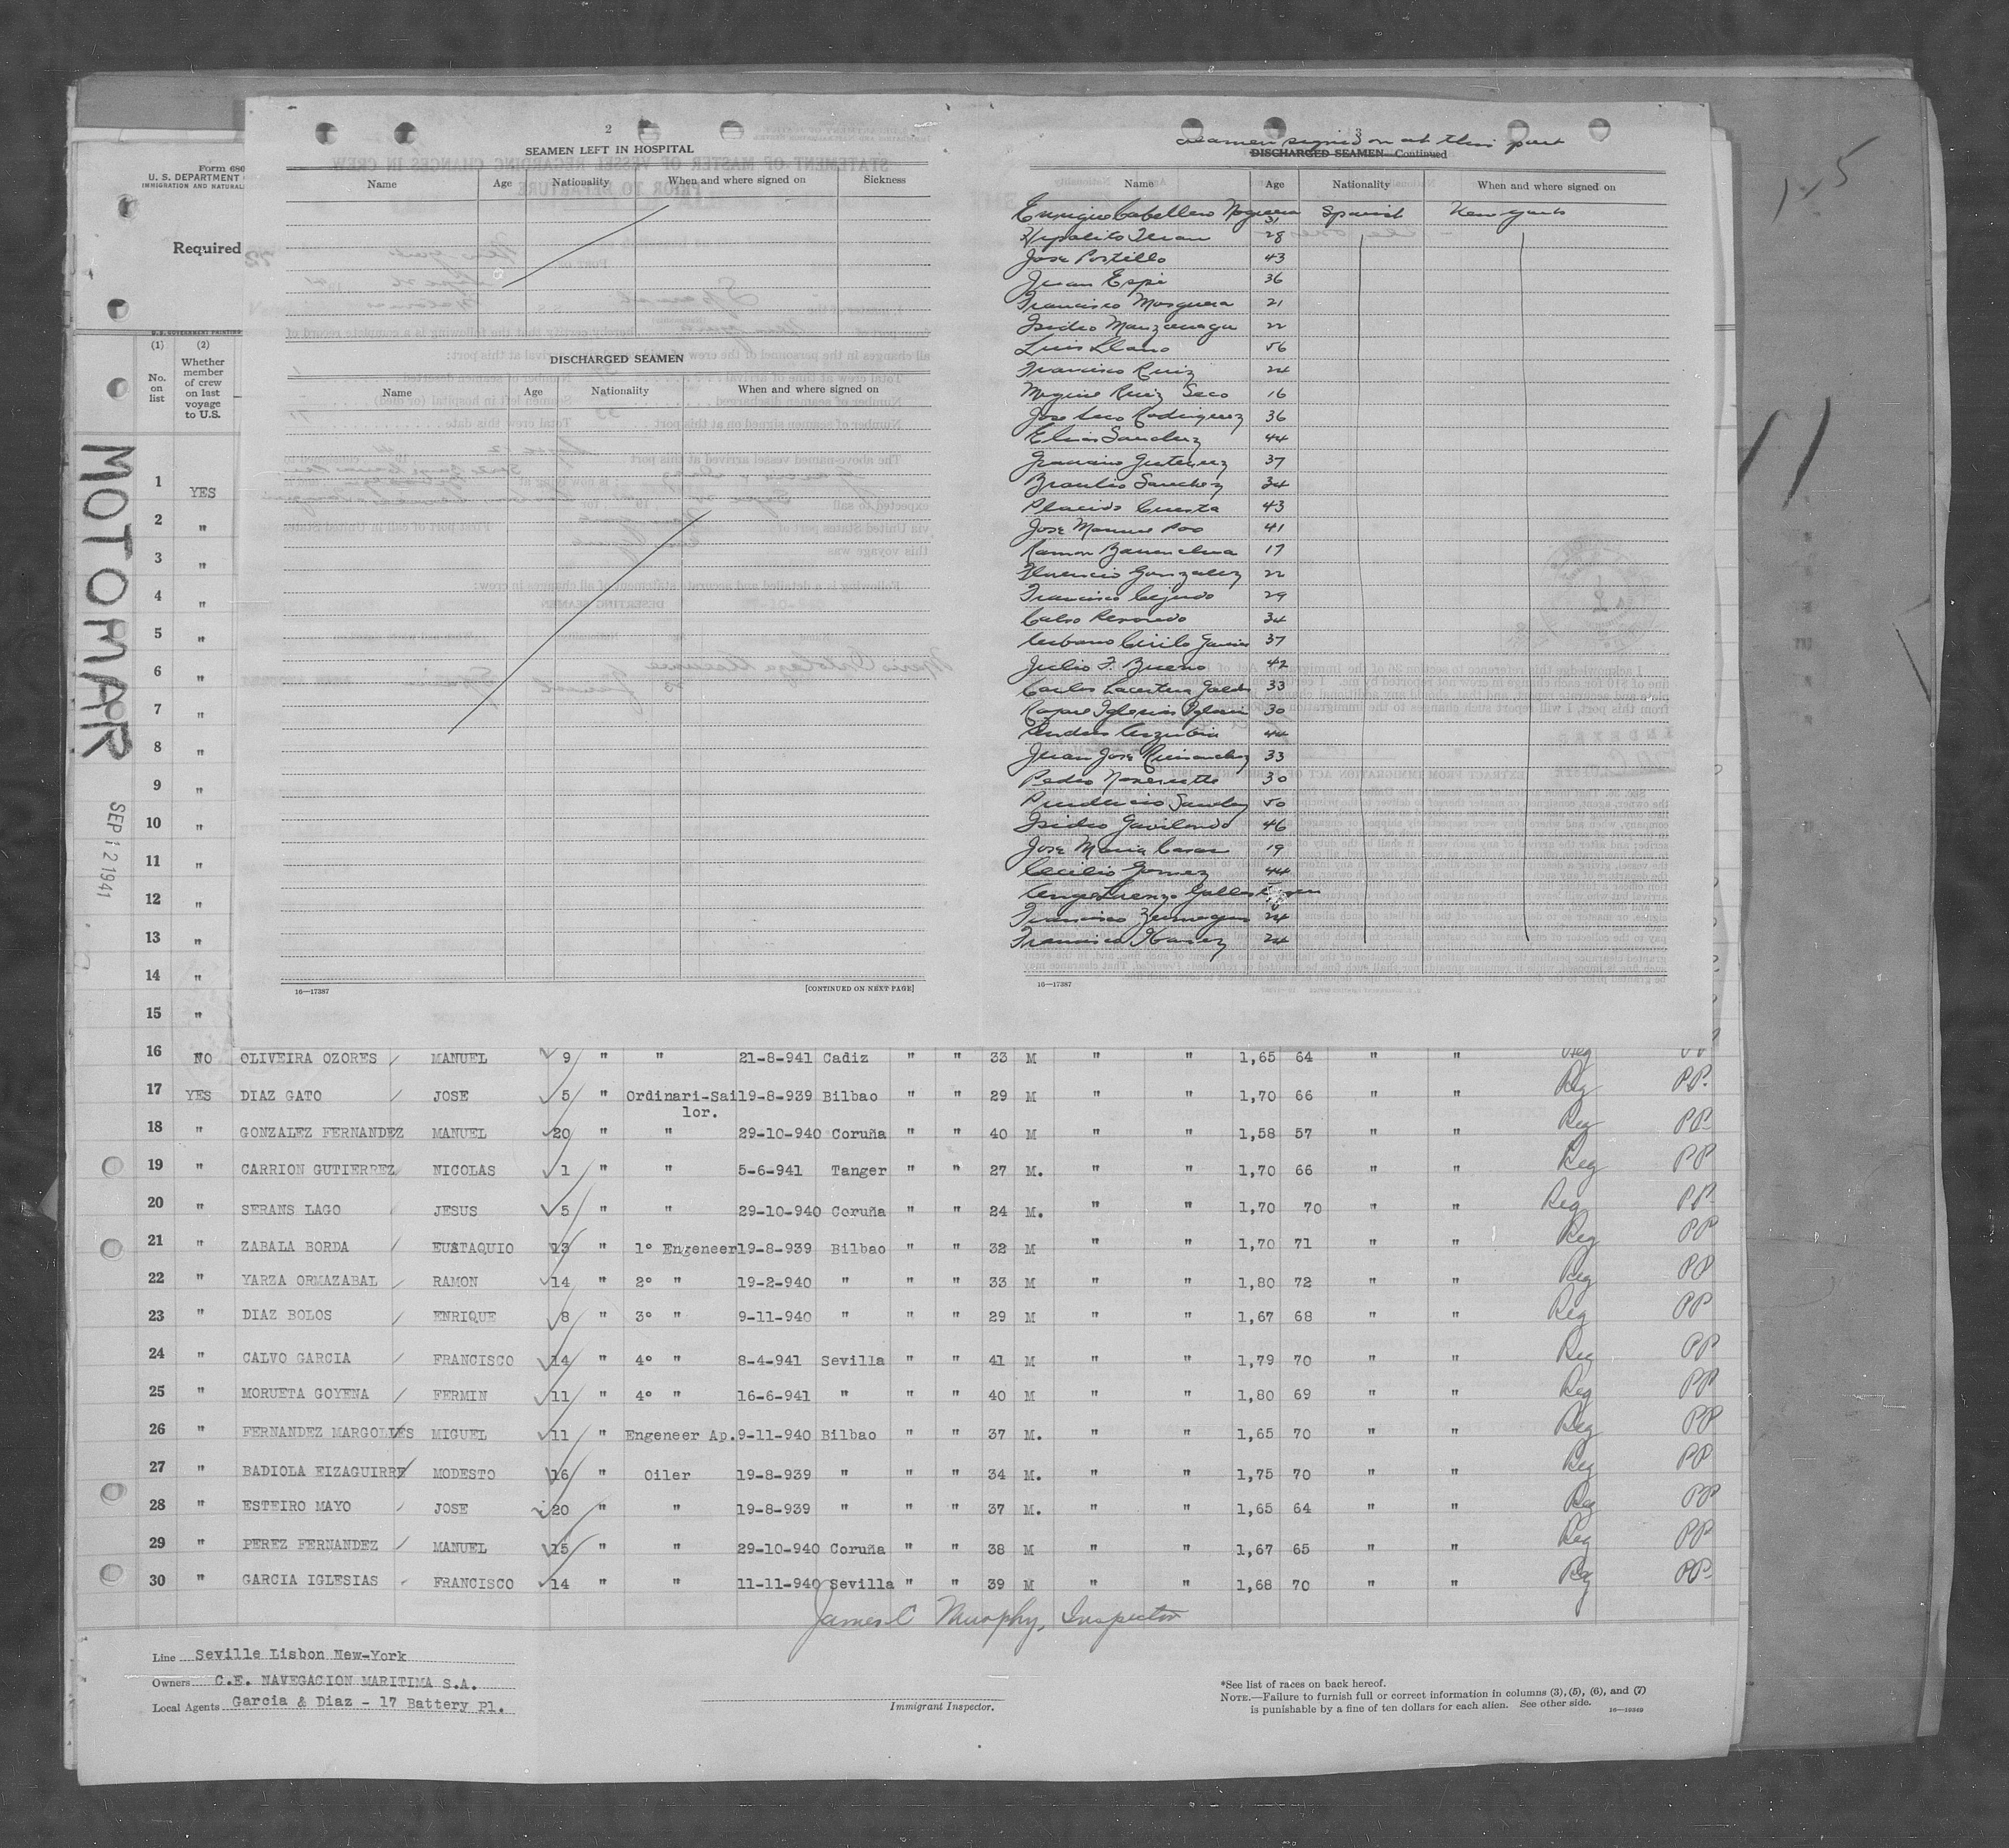 2
SEAMEN LEFT IN HOSPITAL
Name Age Nationality When and where signed on Sickness
DISCHARGED SEAMEN
Name Age Nationality When and where signed on
16—17387 [CONTINUED ON NEXT PAGE]
3
seamen signed on at this port
DISCHARGED SEAMEN—Continued
Name Age Nationality When and where signed on
Enrique Caballero Noguera 31 Spanish New York
Hipolito 28
Jose Portillo 43
Juan Espi 36
Francisco Mosquera 21
Isidro Manzanaga 22
Luis Llano 56
Francisco Ruiz 24
Ruiz Seco 16
Jose Seco Rodriguez 36
Elias Sanchez 44
Gutierrez 37
Braulio Sanchez 34
Placido Cuesta 43
Jose Manuel Poo 41
Ramon 17
Florencio Gonzalez 22
Francisco Cejudo 29
34
Urbano Cirilo Garcia 37
Julio F. Bueno 42
Carlos 33
Iglesias Iglesias 30
Andres 44
Juan Jose 33
Pedro 30
Prudencio 50
Isidro Gavilondo 46
Jose Maria 19
Cecilio Gomez 44
Francisco 24
Francisco Ibanez 24
16—17387
Form 680
U. S. DEPARTMENT
IMMIGRATION AND NATURAL
Required
U.S. GOVERNMENT PRINTING
(1) (2)
No. on list
Whether member of crew on last voyage to U.S.
MOTOMAR
SEP 12 1941
1 YES
2 "
3 "
4 "
5 "
6 "
7 "
8 "
9 "
10 "
11 "
12 "
13 "
14 "
15 "
16 NO OLIVEIRA OZORES MANUEL 9 " " 21-8-941 Cadiz " " 33 M " " 1,65 64 " " Reg PP
17 YES DIAZ GATO JOSE 5 " Ordinari-Sai 19-8-939 Bilbao " " 29 M " " 1,70 66 " " Reg PP.
lor.
18 " GONZALEZ FERNANDEZ MANUEL 20 " " 29-10-940 Coruña " " 40 M " " 1,58 57 " " Reg PP
19 " CARRION GUTIERREZ NICOLAS 1 " " 5-6-941 Tanger " " 27 M. " " 1,70 66 " " Reg PP
20 " SERANS LAGO JESUS 5 " " 29-10-940 Coruña " " 24 M. " " 1,70 70 " " Reg PP
21 " ZABALA BORDA EUSTAQUIO 13 " 1º Engeneer 19-8-939 Bilbao " " 32 M " " 1,70 71 " " Reg PP
22 " YARZA ORMAZABAL RAMON 14 " 2º " 19-2-940 " " " 33 M " " 1,80 72 " " Reg PP
23 " DIAZ BOLOS ENRIQUE 8 " 3º " 9-11-940 " " " 29 M " " 1,67 68 " " Reg PP
24 " CALVO GARCIA FRANCISCO 14 " 4º " 8-4-941 Sevilla " " 41 M " " 1,79 70 " " Reg PP
25 " MORUETA GOYENA FERMIN 11 " 4º " 16-6-941 " " " 40 M " " 1,80 69 " " Reg PP
26 " FERNANDEZ MARGOLLES MIGUEL 11 " Engeneer Ap. 9-11-940 Bilbao " " 37 M. " " 1,65 70 " " Reg PP
27 " BADIOLA EIZAGUIRRE MODESTO 16 " Oiler 19-8-939 " " " 34 M. " " 1,75 70 " " Reg PP
28 " ESTEIRO MAYO JOSE 20 " " 19-8-939 " " " 37 M. " " 1,65 64 " " Reg PP
29 " PEREZ FERNANDEZ MANUEL 15 " " 29-10-940 Coruña " " 38 M " " 1,67 65 " " Reg PP
30 " GARCIA IGLESIAS FRANCISCO 14 " " 11-11-940 Sevilla " " 39 M " " 1,68 70 " " Reg PP
James C Murphy, Inspector
Line Seville Lisbon New-York
Owners C.E. NAVEGACION MARITIMA S.A.
Local Agents Garcia & Diaz - 17 Battery Pl.
Immigrant Inspector.
*See list of races on back hereof.
NOTE.—Failure to furnish full or correct information in columns (3), (5), (6), and (7)
is punishable by a fine of ten dollars for each alien. See other side.
16—19349